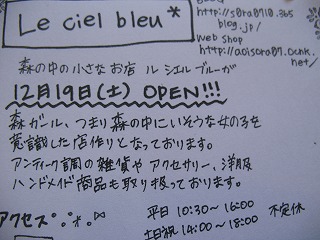 Le ciel bleu*
http://s0ra0710.365
blog.jp/
Web shop
http://aoisora07.cink.
net/
森の中の小さなお店 ル シエル ブルーが
12月19日(土) OPEN!!!
森ガール、つまり森の中にいそうな女の子を
意識した店作りとなっております。
アンティーク調の雑貨や アクセサリー、洋服
ハンドメイド商品も取り扱っております。
アクセス
平日 10:30～16:00 不定休
土日祝 14:00～18:00